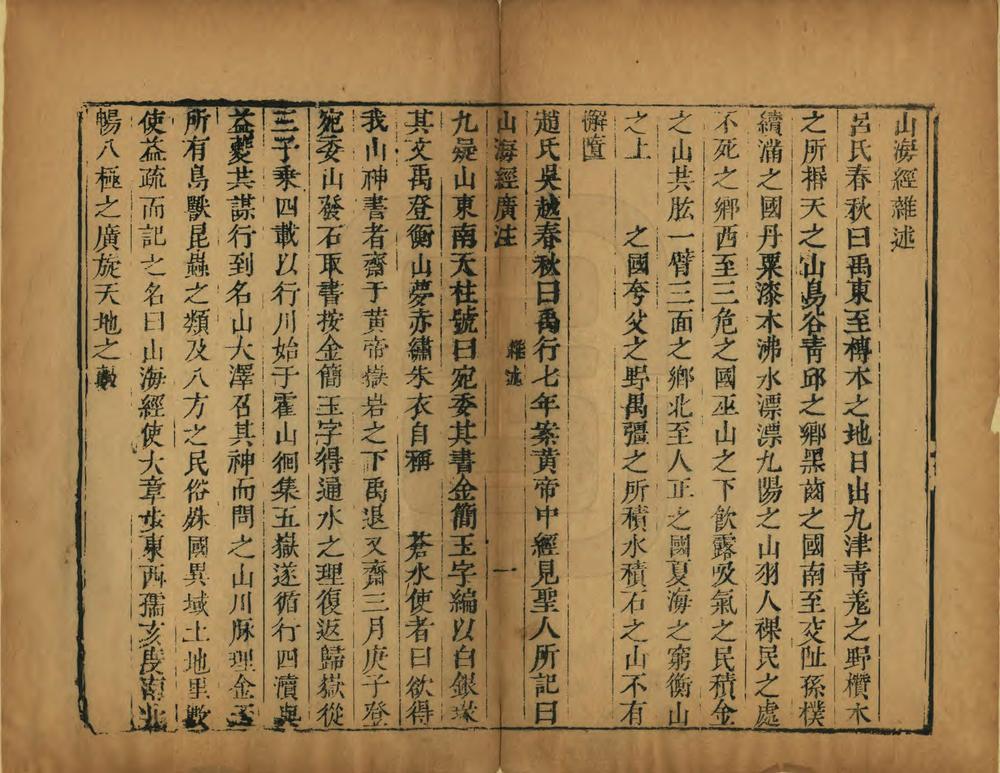 山海經雜述
呂氏春秋曰禹東至榑木之地日出九津青羗之野櫕木
之所㨉天之山鳥谷青邱之鄉黑齒之國南至交阯孫樸
續滿之國丹粟漆木沸水漂漂九陽之山羽人裸民之處
不死之鄉西至三危之國巫山之下飲露吸氣之民積金
之山共肱一臂三面之鄉北至人正之國夏海之窮衡山
之上 之國夸父之野禺彊之所積水積石之山不有
懈墮
趙氏吳越春秋曰禹行七年案黃帝中經見聖人所記曰
山海經廣注 雜述 一
九嶷山東南天柱號曰宛委其書金簡玉字編以白銀瑑
其文禹登衡山夢赤繡朱衣自稱 蒼水使者曰欲得
我山神書者齋于黃帝嶽岩之下禹退又齋三月庚子登
宛委山發石取書按金簡玉字得通水之理復返歸嶽從
三子乘四載以行川始于霍山徊集五嶽遂循行四瀆與
益夔共謀行到名山大澤召其神而問之山川脉理金玉
所有鳥獸昆蟲之類及八方之民俗姝國異域土地里數
使益疏而記之名曰山海經使大章步東西孺亥度南北
暢八極之廣旋天地之數